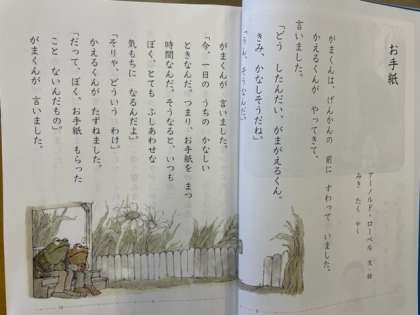 お手紙
アーノルド・ローベル 文・絵
みき たく やく
がまくんは、げんかんの 前に すわって いました。
かえるくんが やってきて、
言いました。
「どう したんだい、がまがえるくん。
きみ、かなしそうだね。」
「うん、そうなんだ。」
がまくんが 言いました。
「今、一日の うちの かなしい
ときなんだ。つまり、お手紙を まつ
時間なんだ。そうなると、いつも
ぼく、とても ふしあわせな
気もちに なるんだよ。」
「そりゃ、どういう わけ。」
かえるくんが たずねました。
「だって、ぼく、お手紙 もらった
こと ないんだもの。」
がまくんが 言いました。